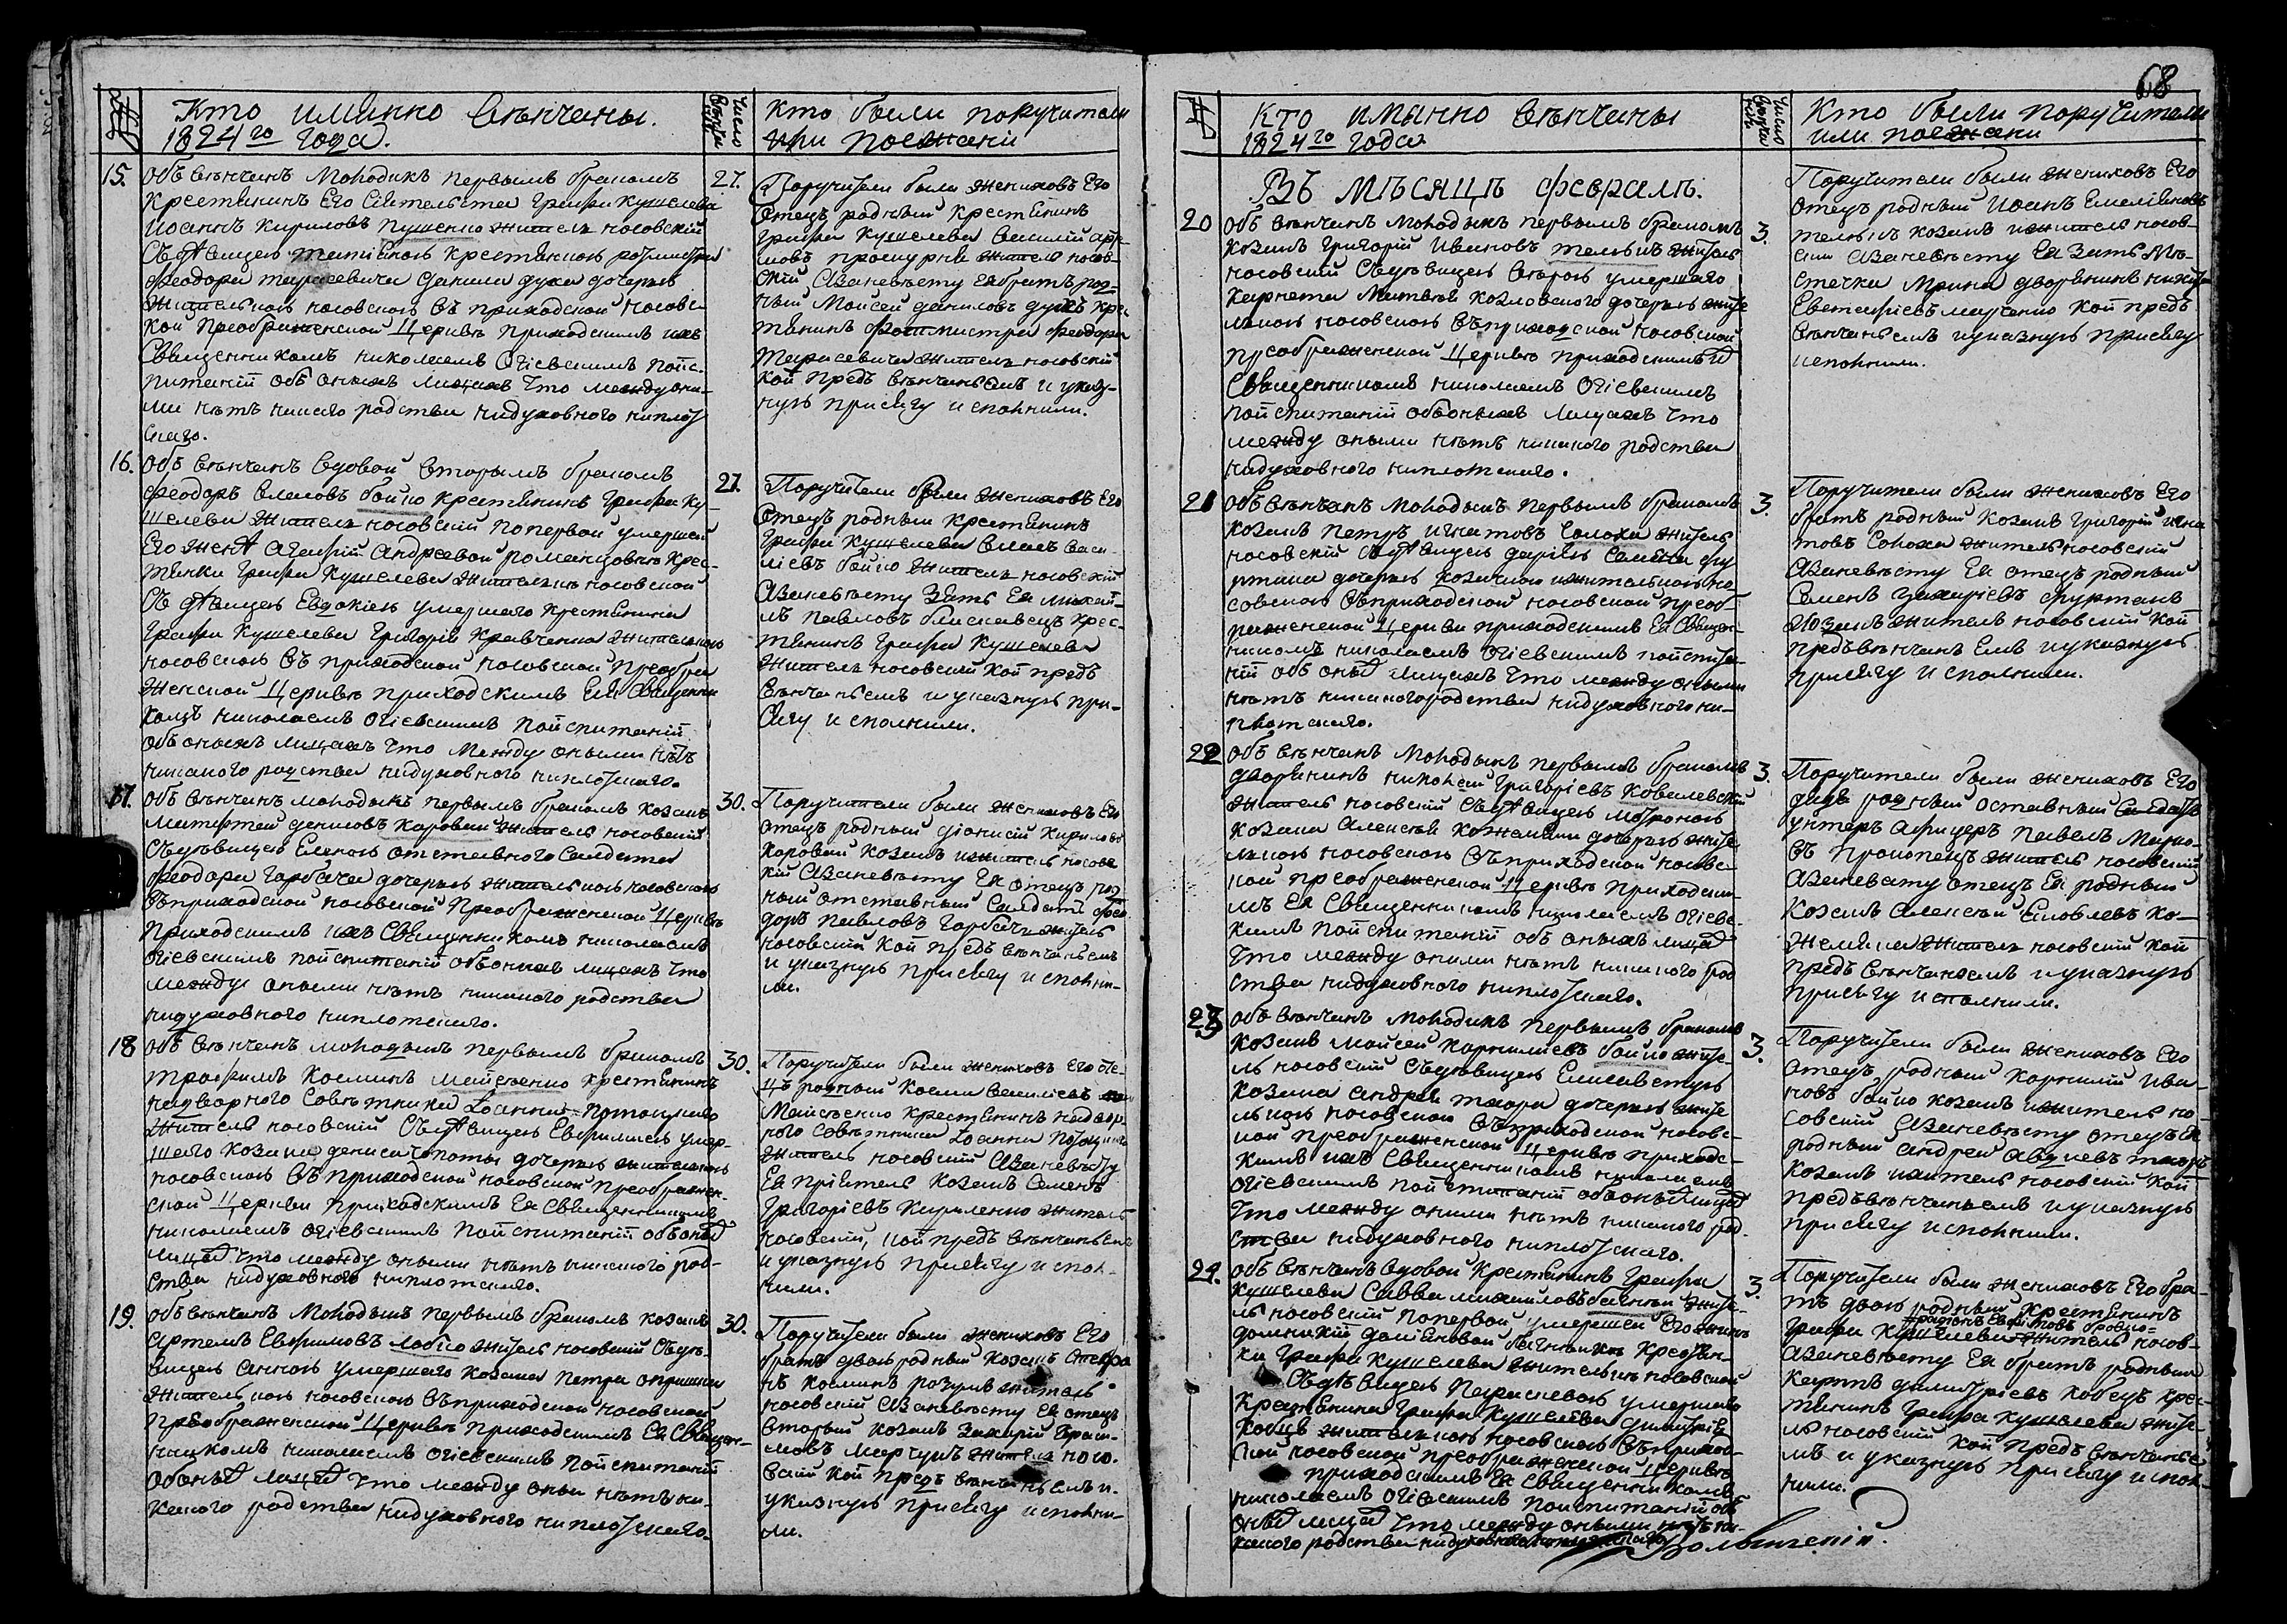 Кто именно венчаны.
1824го года.
Число венчанія
Кто были поручители
или поезжаніи
15.
обвенчанъ молодикъ первымъ бракомъ
крестянинъ Его Сіятельства Графа Кушелева
Иоаннъ Кириловъ житель носовскій
Съ девицею крестянкою ротмистра
Феодора Тарасевича Данила Духа дочерью
жителькою носовскою въ приходской носовс-
кой преображенской церкве приходскимъ ихъ
священникомъ николаемъ Огіевскимъ поис-
питаній обь оныхъ лицахъ что между они-
ми нетъ никаго родства нидуховного ниплот
скаго.
27.
Поручители были жениховъ Его
отецъ родный крестянинъ
Графа Кушелева Василій
житель носов-
скій, Азаневесту Ея братъ род-
ный Моисей Даниловъ Духъ кре-
стянинъ Ротмистра Феодора
Тарасевича житель носовскій
кой предъ венчаньемъ и указ-
ную присягу исполнили.
16.
обвенчанъ вдовой вторымъ бракомъ
Феодоръ Власовъ бойко крестянинъ Графа Ку-
шелева житель носовскій попервой умершей
Его жене Агафій Андреевой крес-
тянки Графа Кушелева жительки носовской
Съ девицею Евдокіею умершаго крестянина
Графа Кушелева Григорія Кравченка жителькою
носовскою въ приходской носовской преобра
женской церкве приходскимъ Ея священни
комъ николаемъ Огіевскимъ поиспитаній
обь оныхъ лицахъ что между оными нетъ
никакого родства нидуховного ниплотскаго.
27.
Поручители были жениховъ Его
отецъ родный крестянинъ
Графа Кушелева Власъ Васи-
ліевъ бойко житель носовскій
Азаневесту Зять Ея михай-
ло Павловъ блискавецъ крес-
тянинъ Графа Кушелева
житель носовскій кой предъ
венчаньемъ и указную при-
сягу исполнили.
17.
обвенчанъ молодикъ первымъ бракомъ козакъ
Матфей Денисовъ Коровай житель носовскій
Съдевицею Еленою отставного Салдата
Феодора Горбача дочерью жителькою носовскою
въприходской носовской преображенской церкве
приходскимъ ихъ священникомъ николаемъ
Огіевскимъ поиспитаній обьоныхъ лицахъ что
между оными нетъ никакого родства
нидуховного ниплотскаго.
30.
Поручители были жениховъ Его
отецъ родный Діонисій Кириловъ
Коровай козакъ ижитель носовс
кій Азаневесту Ея отецъ род
ный отставный Салдатъ Фео
доръ Павловъ Горбачъ житель
носовскій кой предъ венчаньемъ
и указную присягу исполни-
ли.
18
обвенчанъ молодикъ первымъ бракомъ
Трофимъ Косминъ крестянинъ
надворного Советника Іоанна
житель носовскій Съдевицею Евфимиею умер-
шаго козака дениса дочерью жителькою
носовскою въ приходской носовской преображен-
ской церкви приходскимъ Ея священникомъ
николаемъ Огіевскимъ поиспитаній обьоных
лицах что между оными нетъ никакого род-
ства нидуховного ниплотскаго.
30.
Поручители были жениховъ Его оте-
цъ родный Косма Василіевъ
крестянинъ надвор-
ного Советника Іоанна
житель носовскій Азаневесту
Ея пріятель козакъ Семенъ
Григоріевъ Кириленко житель
носовскій, кой предъ венчаньем
и указную присягу испол-
нили.
19.
обвенчанъ молодикъ первымъ бракомъ козакъ
Артемъ Евфимовъ житель носовскій Съде-
вицею Анною умершаго козака Петра
жителькою носовскою въприходской носовской
преображенской церкве приходскимъ Ея священ-
никомъ николаемъ Огіевскимъ поиспитаній
обоных лицах что между оны нетъни-
какого родства нидуховного ниплотскаго.
30.
Поручители были жениховъ Его
братъ двоюродный козакъ Стефа
нъ Косминъ житель
носовскій Азаневесту Ея отецъ
вторый козакъ Захарій
житель носо-
вскій кой предъ венчаньемъ и
указную присягу исполни-
ли.
68
Кто именно венчаны
1824го года
Число венчанія
Кто были поручители
или поезжани
Въ месяце феврале.
20
обвенчанъ молодикъ первымъ бракомъ
козакъ Григорій Ивановъ житель
носовскій Съдевицею умершаго
Корнета Матвея Козловского дочерью жите
лькою носовскою въприходской носовской
преображенской церкве приходскимъ
священникомъ николаемъ Огіевскимъ
поиспитаній обьоныхъ лицахъ что
между оными нетъ никакого родства
нидуховного ниплотскаго.
3.
Поручители были жениховъ Его
отецъ родный Иоанъ Емеліановъ
козакъ ижитель носов-
скій Азаневесту Ея Зять Ме-
стечка Мрина дворянинъ
кой предъ
венчаньемъ иуказную присягу
исполнили.
21
обвенчанъ молодикъ первымъ бракомъ
козакъ Петръ Игнатовъ Солоха житель
носовскій Съдевицею Даріею Семена
дочерью козачкою ижителькою но-
совскою въприходской носовской преоб-
раженской церкви приходскимъ Ея священ-
никомъ николаемъ Огіевскимъ поиспита-
ній обь оных лицахъ что между оными
нетъ никакогородства нидуховного ни-
плотскаго.
3.
Поручители были жениховъ Его
братъ родный козакъ Григорій Игна
товъ Солоха житель носовскій
Азаневесту Ея отецъ родный
Семенъ Захаріевъ
козакъ житель носовскій кой
предъвенчаньемъ иуказную
присягу исполнили.
22
обвенчанъ молодикъ первымъ бракомъ
дворянинъ николай Григоріевъ Ковалевскій
житель носовскій Съдевицею мотроною
козака Алексея дочерью жите
лькою носовскою въприходской носовс-
кой преображенской церкве приходски-
мъ Ея священникомъ николаемъ Огіевс-
кимъ поиспитаній обь оныхъ лицах
что между оними нетъ никакого род
ства нидуховного ниплотскаго.
3.
Поручители были жениховъ Его
дядя родный оставный Салдатъ
унтеръ Афицеръ Павелъ
житель носовскій
Азаневесту отецъ Ея родный
козакъ Алексей Яковлевъ
житель носовскій кой
предъ венчаньемъ иуказную
присягу исполнили.
23
обвенчанъ молодикъ первымъ бракомъ
козакъ Моисей Корниліевъ бойко жите-
ль носовскій Съдевицею Елисаветою
козака Андрея дочерью жите
лькою носовскою въприходской носовс-
кой преображенской церкве приходс-
кимъ ихъ священникомъ николаемъ
Огіевскимъ поиспитаній обьоных лицах
что между оними нетъ никакого род-
ства нидуховного ниплотскаго.
3.
Поручители были жениховъ Его
отецъ родный Корнилій Ива-
новъ бойко козакъ ижитель но-
совскій Азаневесту отецъ Ея
родный Андрей
козакъ ижитель носовскій кой
предъвенчаньемъ иуказную
присягу исполнили.
24.
обвенчанъ вдовой крестянинъ Графа
Кушелева Савва михайловъ жите-
ль носовскій попервой умершей Его жинк
крестян-
ки Графа Кушелева жительки носовской
Съдевицею умершаго
крестянина Графа Кушелева Димитрія
жителькою носовскою въприход-
ской носовской преображенской церкве
приходскимъ Ея священникомъ
николаемъ Огіевскимъ поиспитаній обь
оных лицах что между оными нетъ ни-
какого родства нидуховного ниплотскаго
3.
Поручители были жениховъ Его бра-
тъ двоюродный крестянинъ
Графа Кушелева житель носов-
Азаневесту Ея братъ родный
димитріевъ крес-
тянинъ Графа Кушелева жите-
ль носовскій кой предъ венчанье
мъ и указную присягу испол-
нили.